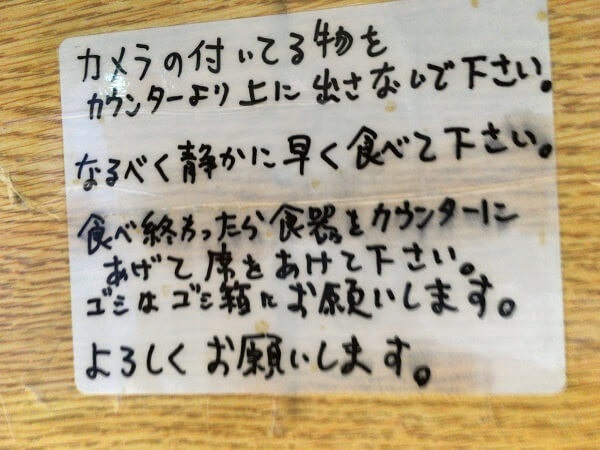 カメラの付いてる物を
カウンターより上に出さないで下さい。
なるべく静かに早く食べて下さい。
食べ終わったら食器をカウンターに
あげて席をあけて下さい。
ゴミはゴミ箱にお願いします。
よろしくお願いします。